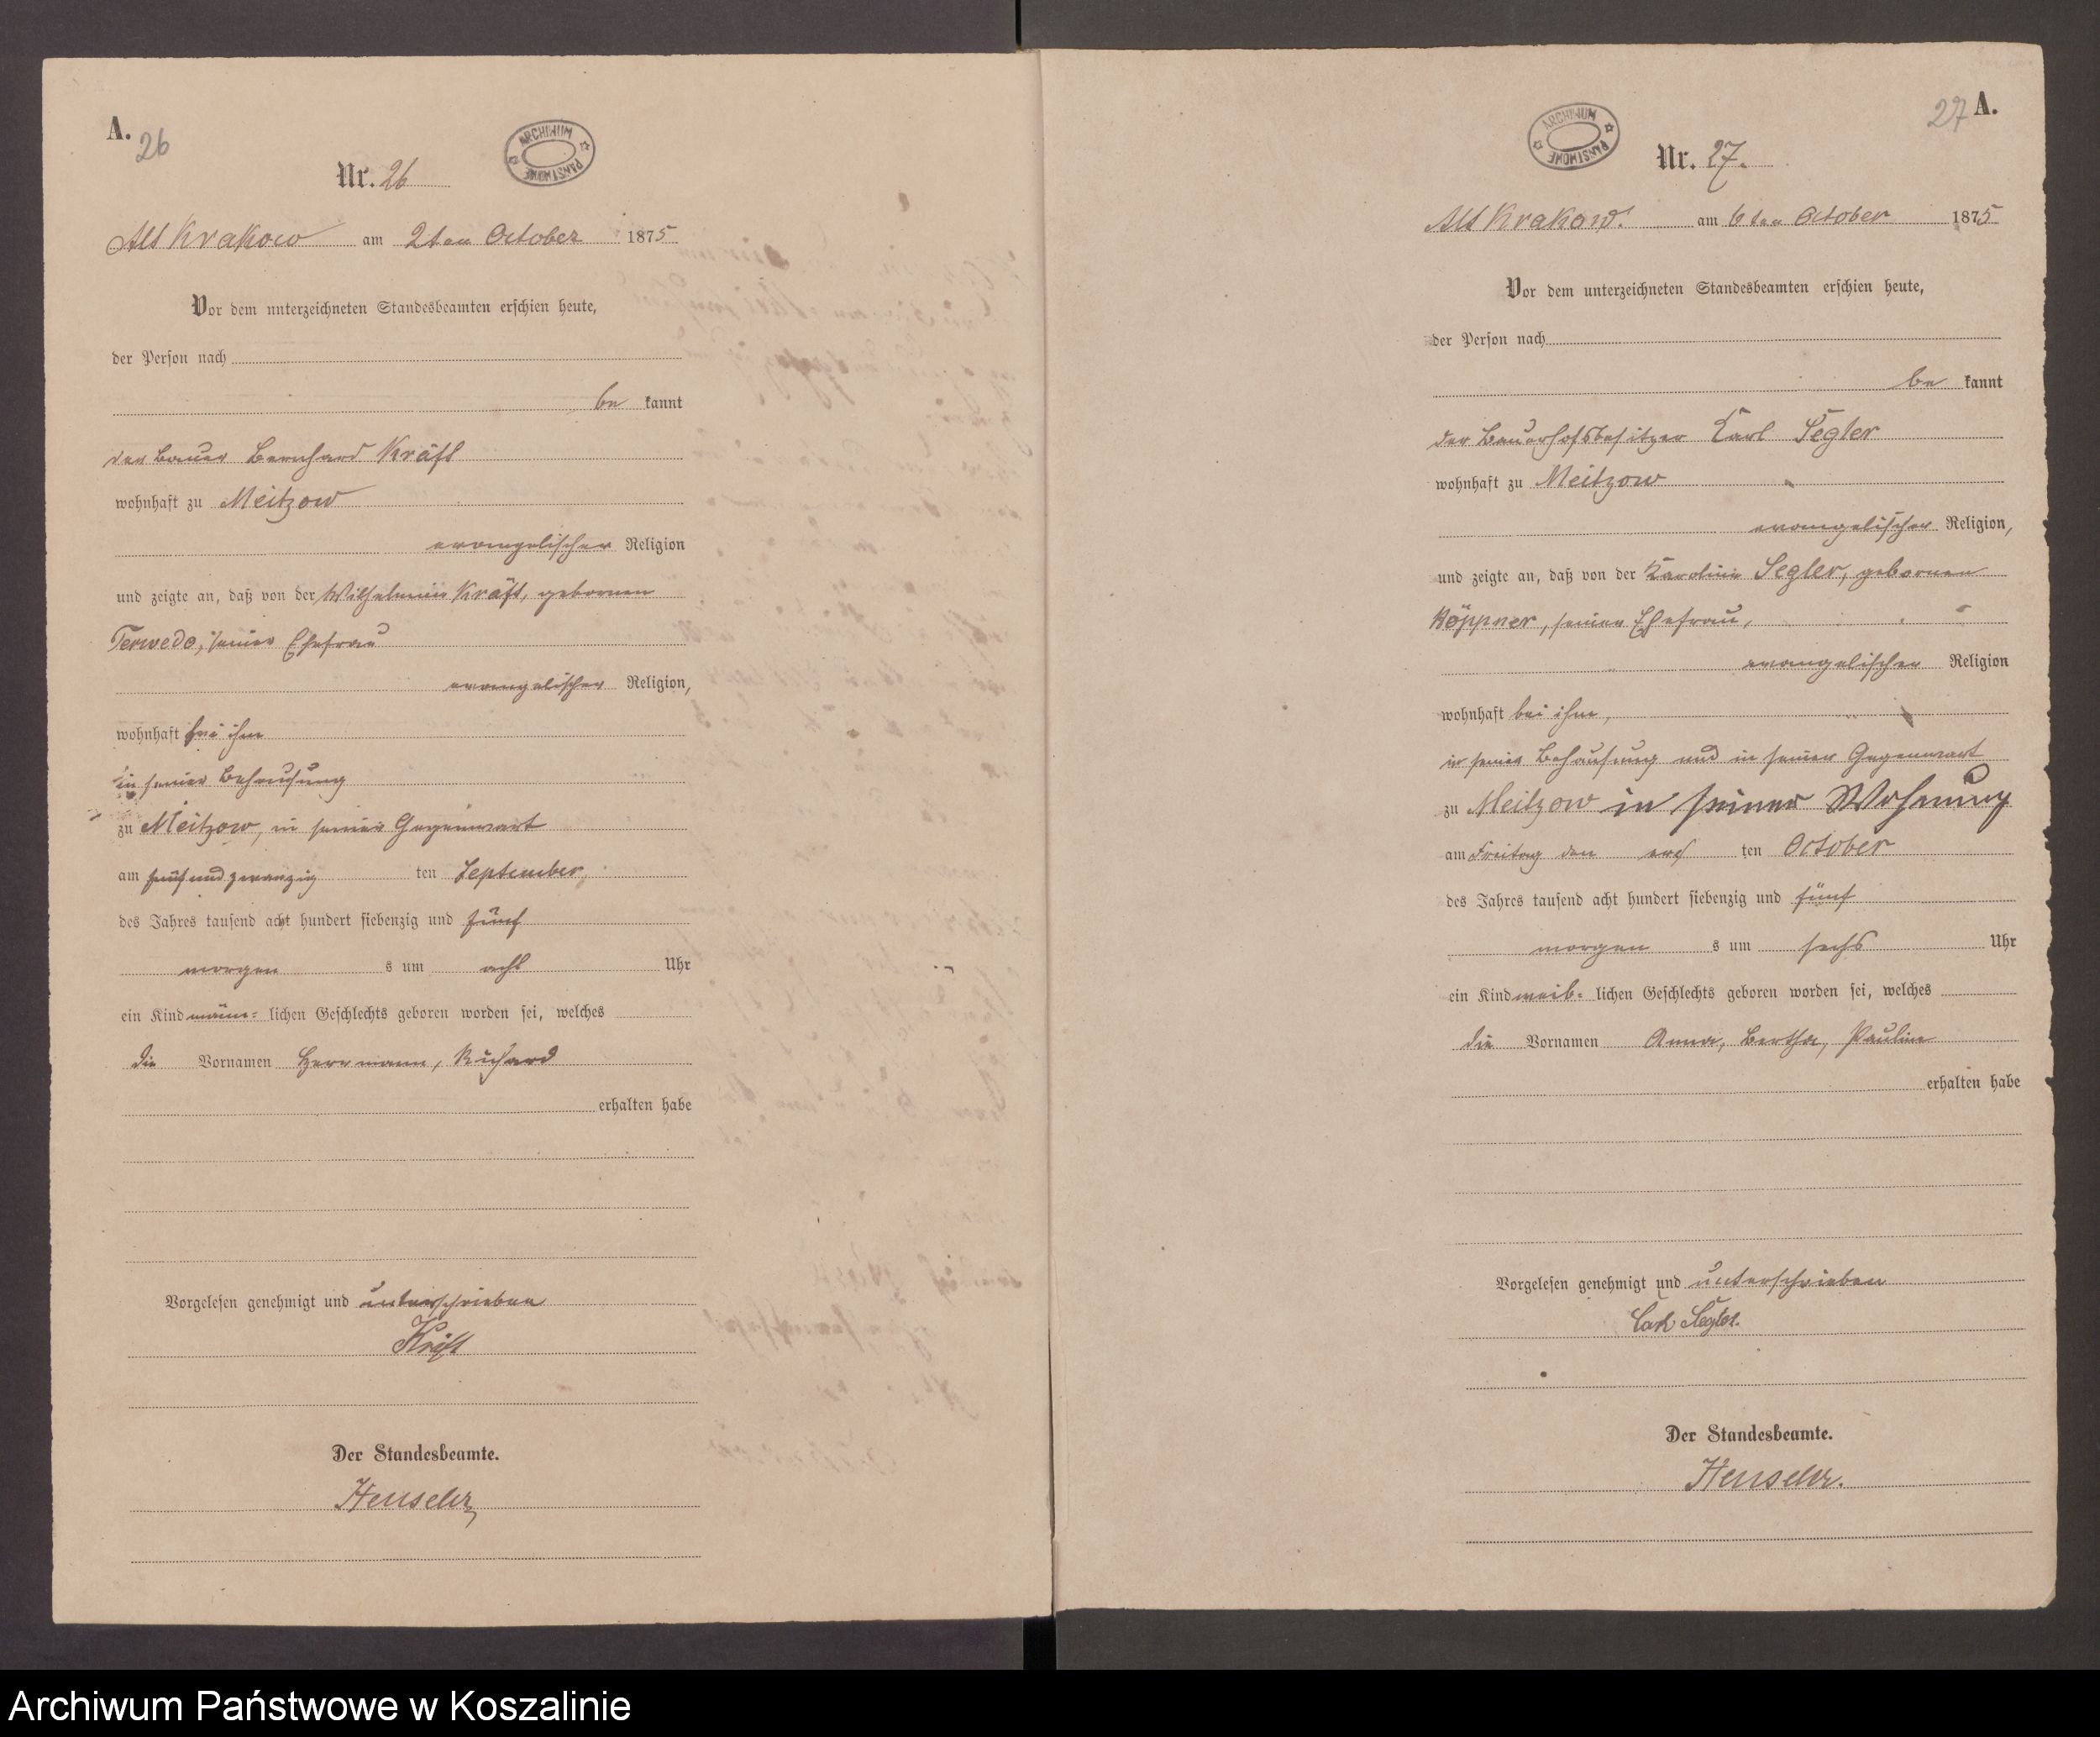 A.
26
ARCHIWUM PAŃSTWOWE
Nr. 26
Alt Krakow am 2ten October 1875
Vor dem unterzeichneten Standesbeamten erschien heute,
der Person nach
be kannt
der Bauer Bernhard Kräft
wohnhaft zu Meitzow
evangelischer Religion
und zeigte an, daß von der Wilhelmine Kräft, gebornen
Terwedo, seiner Ehefrau
evangelischer Religion,
wohnhaft bei ihm
in seiner Behausung
zu Meitzow, in seiner Gegenwart
am fünfundzwanzig ten September,
des Jahres tausend acht hundert siebenzig und fünf
morgen s um acht Uhr
ein Kind männ= lichen Geschlechts geboren worden sei, welches
die Vornamen Herrmann, Richard
erhalten habe
Vorgelesen genehmigt und unterschrieben
Kräft
Der Standesbeamte.
27 A.
ARCHIWUM PAŃSTWOWE
Nr. 27.
Alt Krakow. am 6ten October 1875
Vor dem unterzeichneten Standesbeamten erschien heute,
der Person nach
be kannt
der Bauerhofsbesitzer Karl Segler
wohnhaft zu Meitzow
evangelischer Religion,
und zeigte an, daß von der Karoline Segler, gebornen
Köppner, seiner Ehefrau,
evangelischer Religion
wohnhaft bei ihm,
in seiner Behausung und in seiner Gegenwart
zu Meitzow in seiner Wohnung
am Freitag den erst ten October
des Jahres tausend acht hundert siebenzig und fünf
morgen s um sechs Uhr
ein Kind weib= lichen Geschlechts geboren worden sei, welches
die Vornamen Anna, Bertha, Pauline
erhalten habe
Vorgelesen genehmigt und unterschrieben
Carl Segler.
Der Standesbeamte.
Archiwum Państwowe w Koszalinie